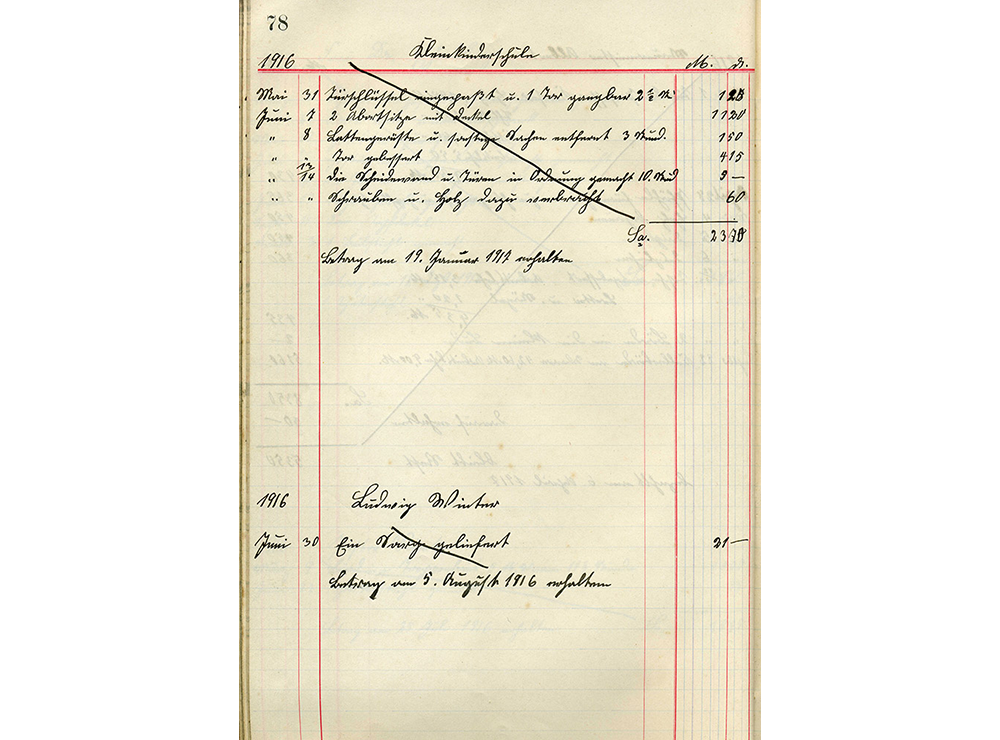 78
Kleinkinderschule
1916 M. d.
Mai 31 Türschlüssel eingepaßt u. 1 Tor gangbar 2 ½ St. 1
Juni 7 2 Abortsitze mit Deckel 11 20
" 8 Lattengerüste u. sonstige Sachen entfernt 3 Stud. 1 50
" Tor gebessert 4 15
" 12/14 Die Scheidewand u. Türen in Ordnung gemacht 10. Stud
" " Schrauben u. Holz dazu verbracht 60
Sa. 23
Betrag am 19. Januar 1917 erhalten
1916 Ludwig Winter
Juni 30 Ein Sarg geliefert 21 —
Betrag am 5. August 1916 erhalten